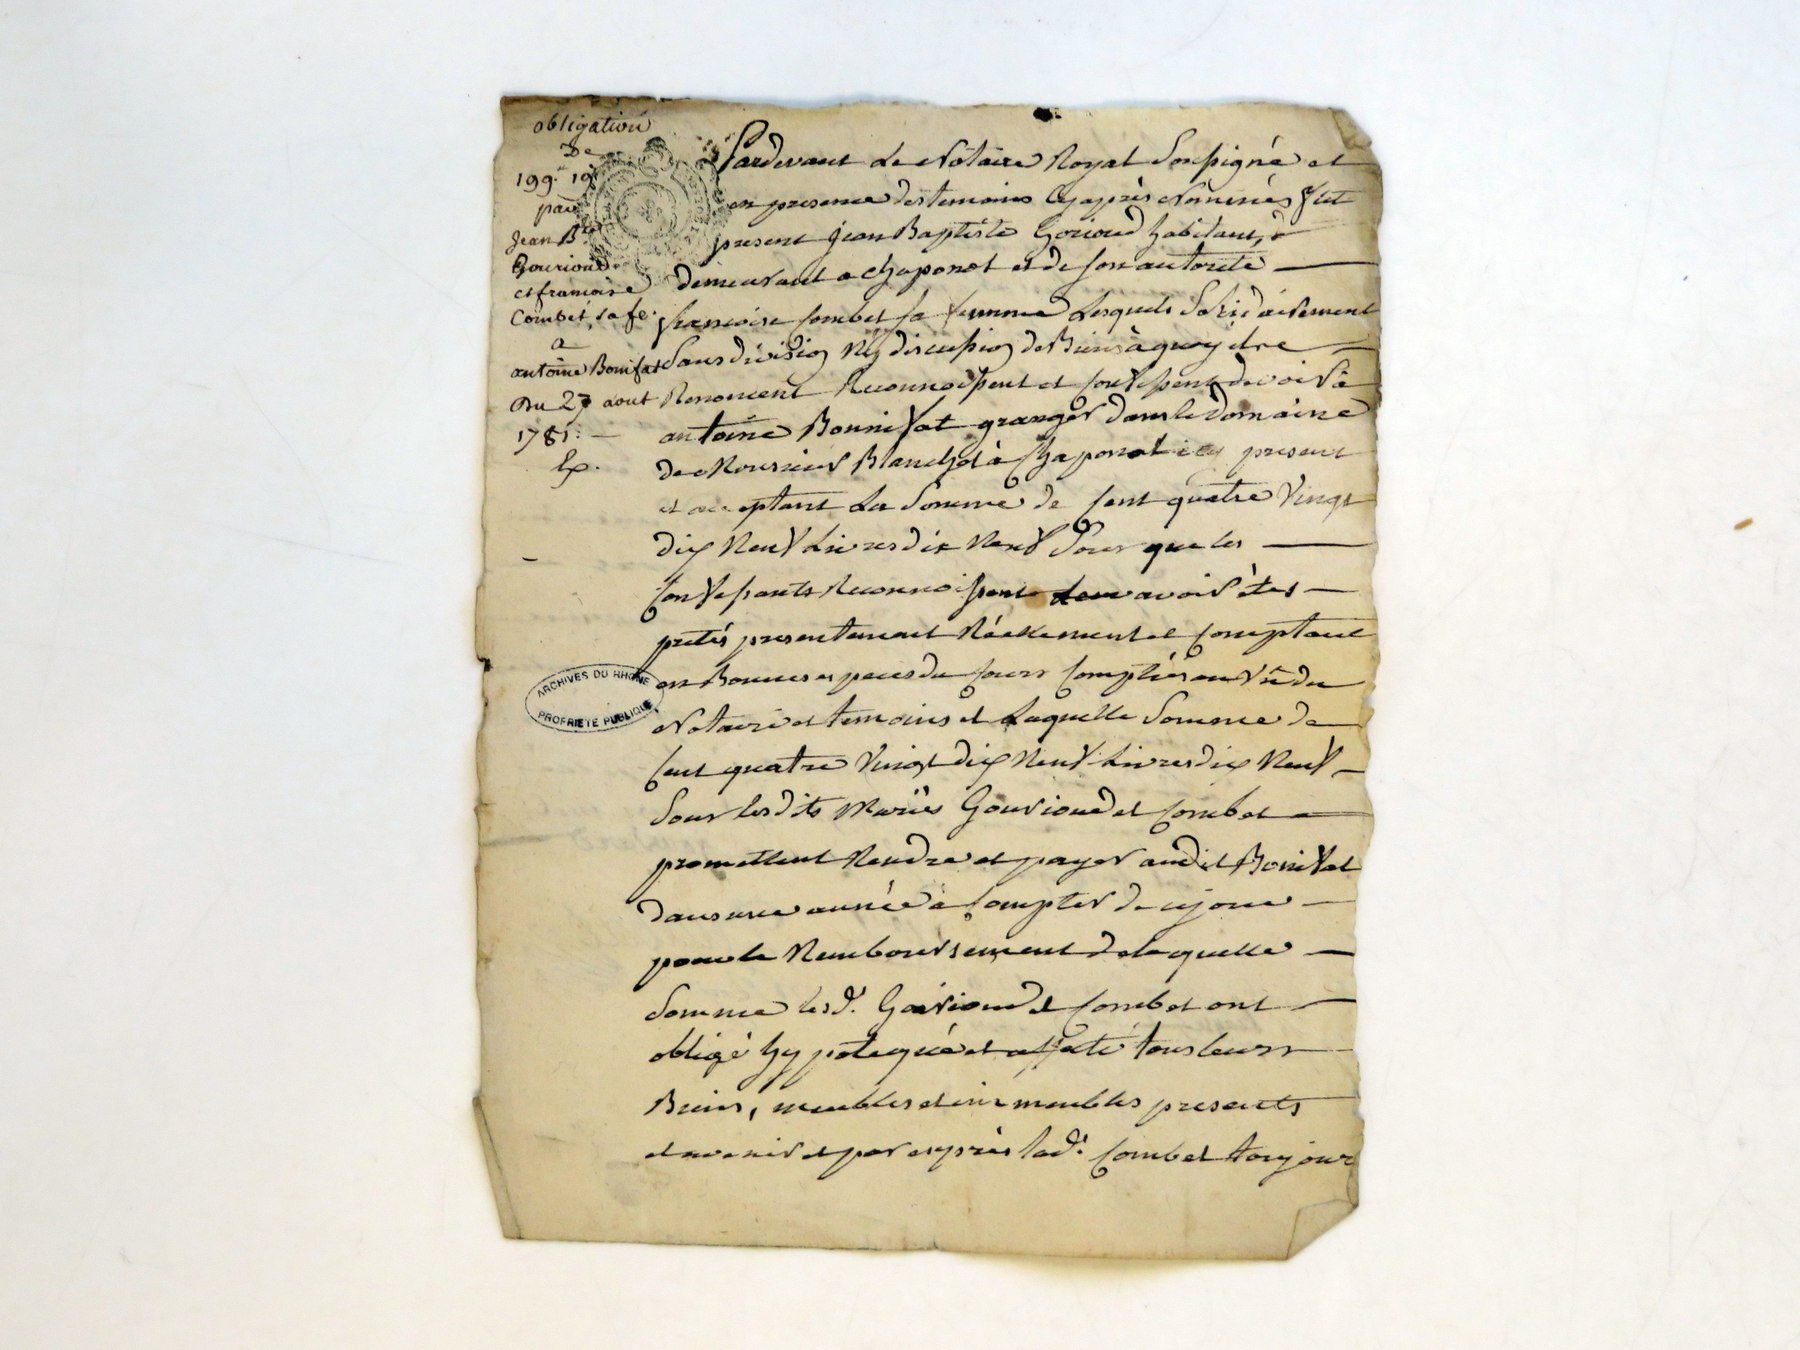 obligation
De
199.ᵗᵗ 19ˢ
par
Jean B.te
Gourioud
et francoise
Combet, sa fe.
a
antoine Bonifat
Du 27 aout
1781. —
Ex.
Pardevant Le Notaire Royal Soussigné et
en presence des temoins Cy après Nommés fut
present Jean Baptiste Gorioud habitant, &
demeurant a chaponot et de son autorité —
francoise Combet sa femme Lesquels Solidairement
Sans division Ny discussion de Biens à quoy ils —
Renoncent Reconnoissent et Confessent devoir à
antoine Bonnifat granger dans le Domaine
de Monsieur Blanchet à Chaponot icy present
et acceptant La Somme de Cent quatre Vingt
dix Neuf Livres dix Neuf Sous que les —
Confessants Reconnoissent avoir étés —
pretés presentement Réellement et Comptant
en Bonnes especes du Cours Comptées au Vû du
Notaire et temoins et Laquelle Somme de
Cent quatre Vingt dix Neuf Livres dix Neuf —
Sous lesdits Mariés Gourioud et Combet —
promettent Rendre et payer audit Bonifat
dans une année à Compter de ce jour —
pour le Remboursement de laquelle —
Somme lesd. Gourioud et Combet ont —
obligé hypotequé et affecté tous leurs
Biens, meubles et immeubles presents
et avenir et par exprès lad. Combet toujour
ARCHIVES DU RHONE
PROPRIETE PUBLIQUE